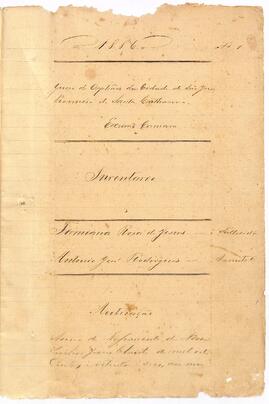 1886
Juizo de Orphãos da Cidade de São José
Provincia de Santa Catharina
Escrivão Camara
Inventario
Damiana Rosa de Jesus
Antonio José Rodrigues
Autuação
Anno do Nascimento de Nosso
Senhor Jesus Christo de mil oito
centos e oitenta e seis, aos